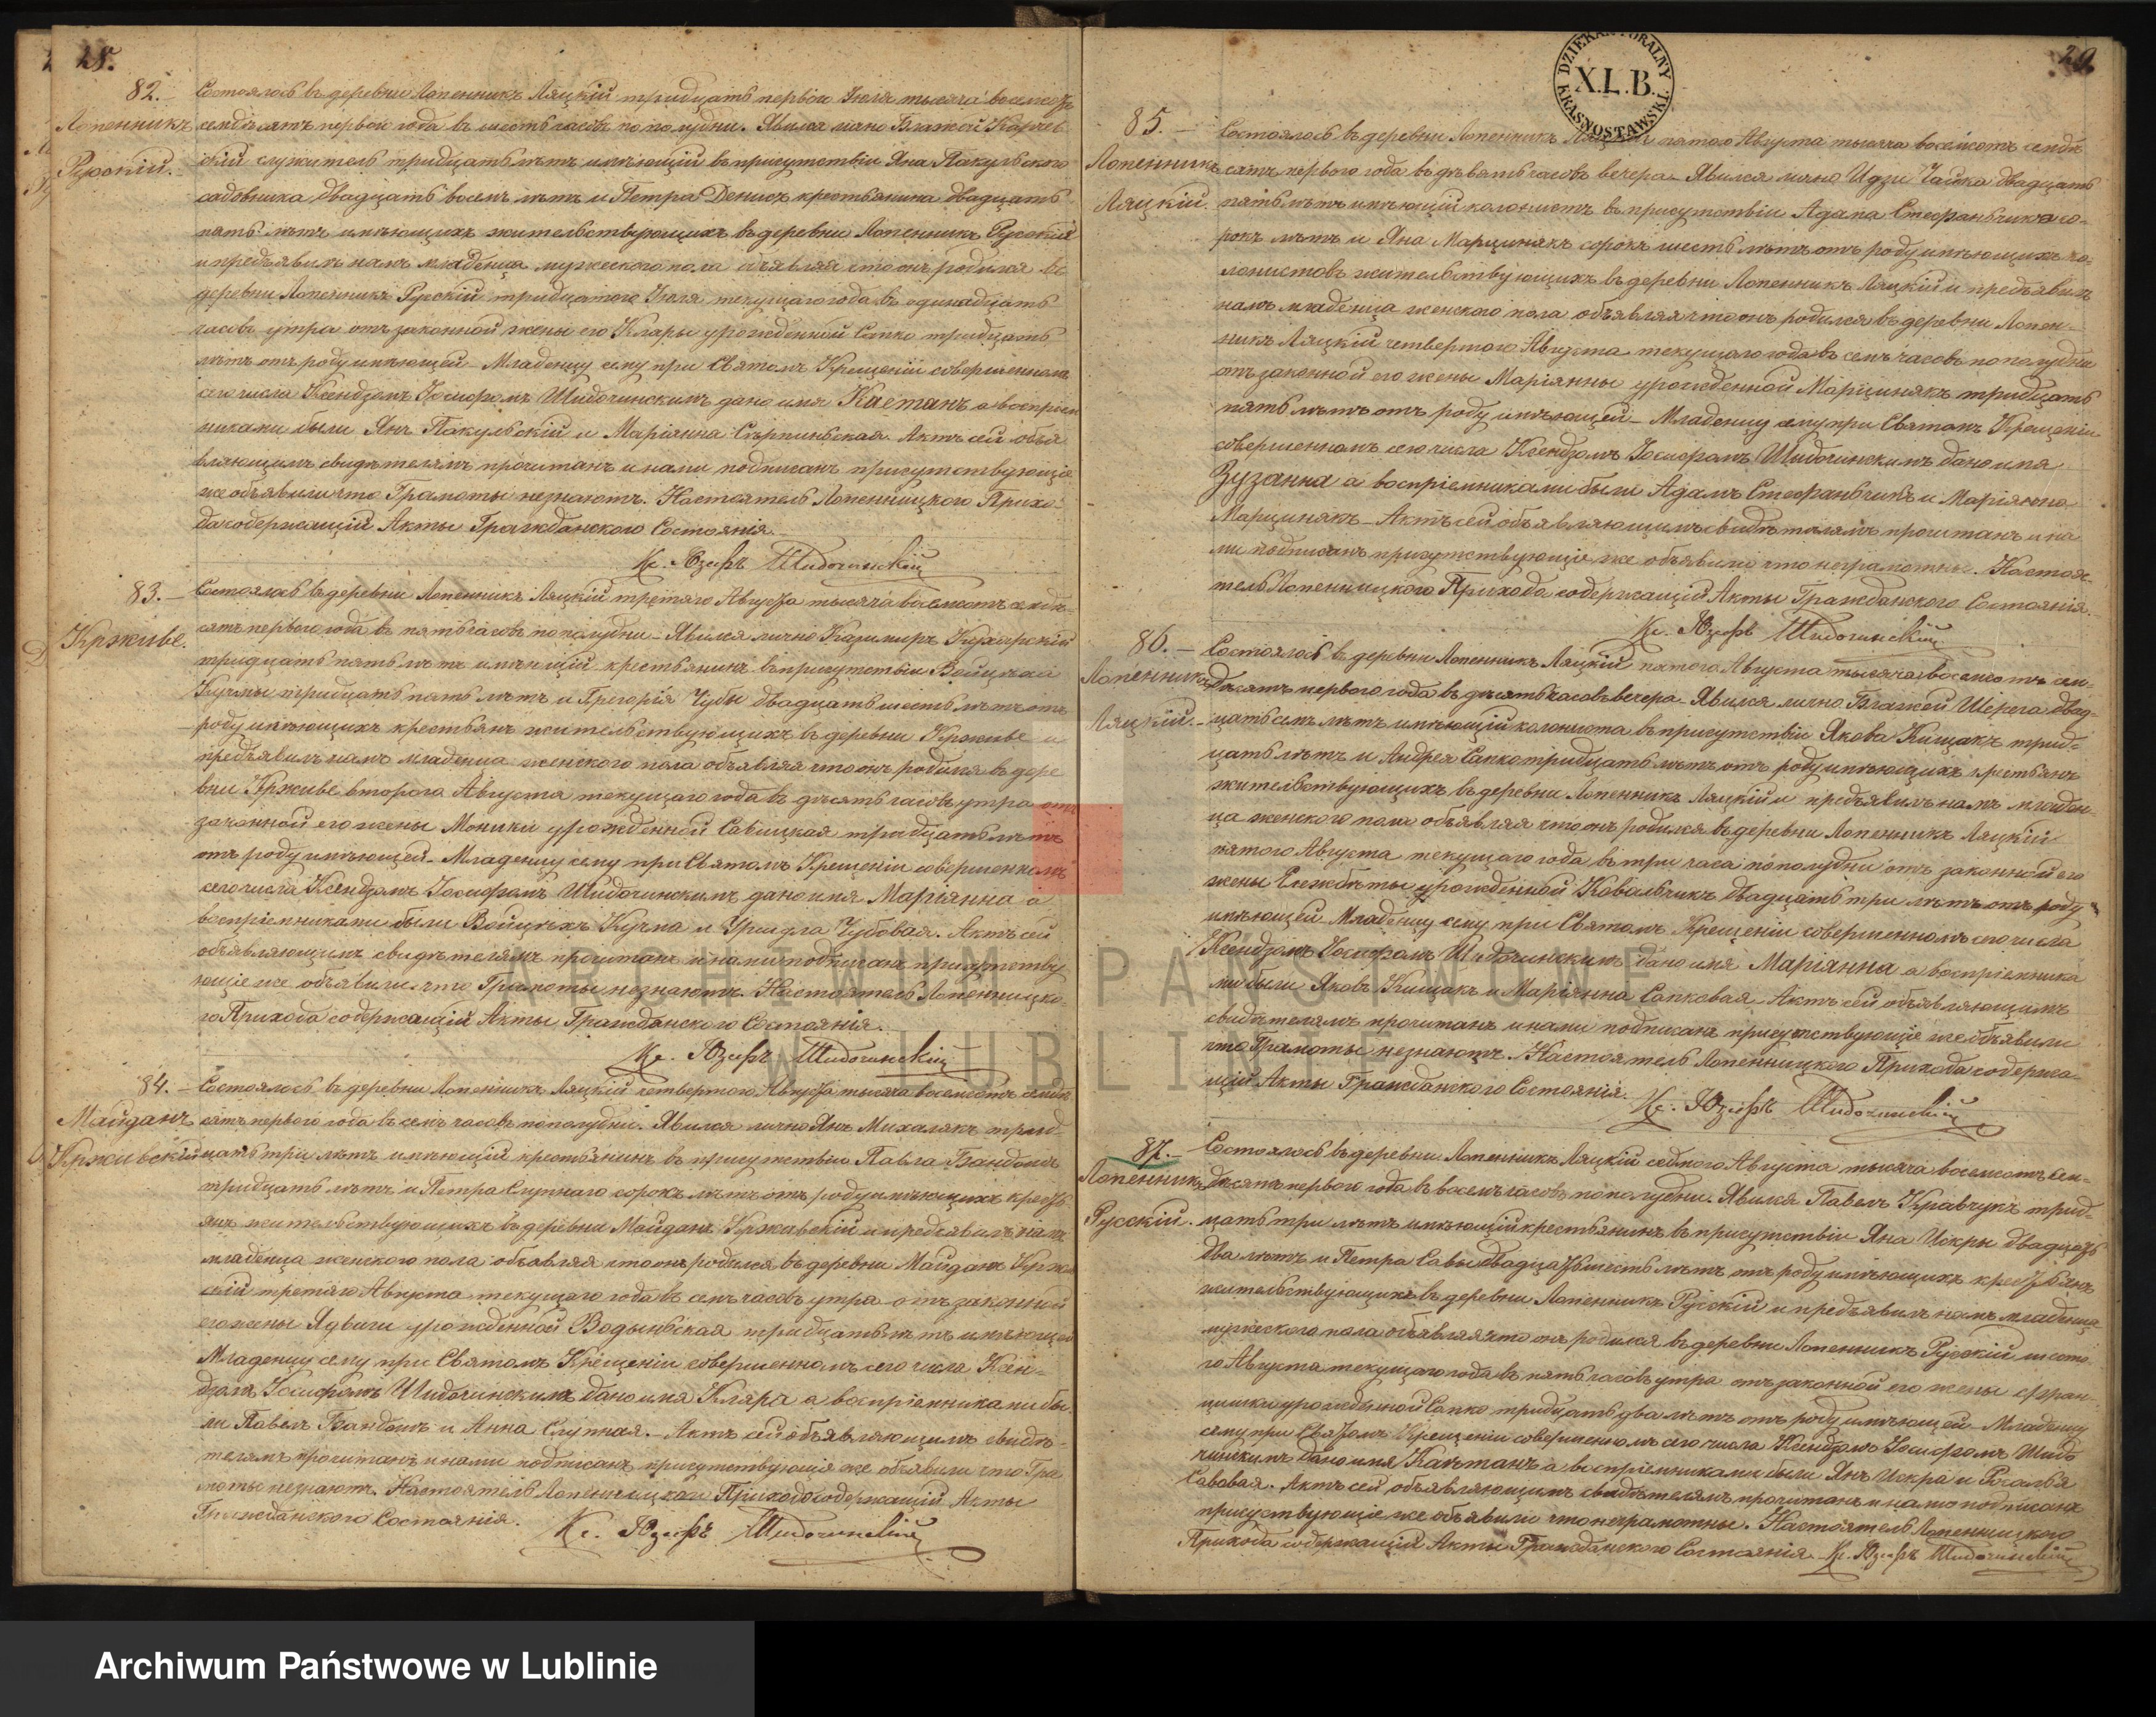 28.
82.
Лопенникъ
Русскій.
Состоялось въ деревни Лопенникъ Ляцкій тридцать первого Іюля тысяча восемсотъ
семдѣсятъ первого года въ шесть часовъ пополудни. Явился лично Блажей Карчев
скій служитель тридцать лѣтъ имѣющій въ присутствіи Яна Пакульского
садовника двадцать восемъ лѣтъ и Петра Денисъ крестьянина двадцать
пять лѣтъ имѣющихъ жительствующихъ въ деревни Лопенникъ Русскій
и предъявилъ намъ младенца мужеского пола объявляя что онъ родился въ
деревни Лопенникъ Русскій тридцатого Іюля текущаго года въ одинадцать
часовъ утра отъ законной жены его Клары урожденной Сапко тридцать
лѣтъ отъ роду имѣющей – Младенцу сему при Святомъ Крещеніи совершенномъ
сего числа Ксендзомъ Іосифомъ Шидочинскимъ дано имя Каетанъ а воспріем
никами были Янъ Пакульскій и Маріянна Скрпиньская. Актъ сей объя
вляющимъ свидѣтелямъ прочитанъ и нами подписанъ присутствующіе
же объявили что Грамоты незнаютъ. Настоятель Лопенницкого Прихо-
да содержащій Акты Гражданского Состоянія.
Кс. Юзефъ Шидочинскій
83.
Крживе.
Состоялось въ деревни Лопенникъ Ляцкій третяго Августа тысяча восемсотъ семдѣ-
сятъ первого года въ пять часовъ пополудни – Явился лично Казимиръ Кухарскій
тридцать пять лѣтъ имѣющій крестьянинъ въ присутствіи Войцѣха
Кучмы тридцать пять лѣтъ и Григорія Чубы двадцать шесть лѣтъ отъ
роду имѣющихъ крестьянъ жительствующихъ въ деревни Крживе и
предъявилъ намъ младенца женского пола объявляя что онъ родился въ дере
вни Крживе второго Августа текущаго года въ десять часовъ утра отъ
законной его жены Моники урожденной Савицкая тридцать лѣтъ
отъ роду имѣющей – Младенцу сему при Святомъ Крещеніи совершенномъ
сего числа Ксендзомъ Іосифомъ Шидочинскимъ дано имя Маріянна а
воспріемниками были Войцѣхъ Кучма и Уршуля Чубовая. Актъ сей
объявляющимъ свидѣтелямъ прочитанъ и нами подписанъ присутству
ющіе же объявили что Грамоты незнаютъ. Настоятель Лопенницко-
го Прихода содержащій Акты Гражданского Состоянія.
Кс. Юзефъ Шидочинскій
84.
Майданъ
Крживскій
Состоялось въ деревни Лопенникъ Ляцкій четвертого Августа тысяча восемсотъ семдѣ
сятъ первого года въ семъ часовъ пополудни. Явился лично Янъ Михалякъ трид-
цать три лѣтъ имѣющій крестьянинъ въ присутствіи Павла Бандошъ
тридцать лѣтъ и Петра Слупнаго сорокъ лѣтъ отъ роду имѣющихъ кресть
янъ жительствующихъ въ деревни Майданъ Крживскій и предъявилъ намъ
младенца женского пола объявляя что онъ родился въ деревни Майданъ Кржив
скій третяго Августа текущаго года въ семъ часовъ утра отъ законной
его жены Ядвиги урожденной Водыньская тридцать лѣтъ имѣющей
Младенцу сему при Святомъ Крещеніи совершенномъ сего числа Ксен-
дзомъ Іосифомъ Шидочинскимъ дано имя Клара а воспріемниками бы-
ли Павелъ Бандошъ и Анна Слупная. – Актъ сей объявляющимъ свидѣ-
телямъ прочитанъ и нами подписанъ присутствующіе же объявили что Гра
моты незнаютъ. Настоятель Лопенницкого Прихода содержащій Акты
Гражданского Состоянія.
Кс. Юзефъ Шидочинскій
29.
DZIEKAN
KRASNOSTAWSKI
X.L.B.
85.
Лопенникъ
Ляцкій.
Состоялось въ деревни Лопенникъ Ляцкій пятого Августа тысяча восемсотъ семдѣ
сятъ первого года въ девять часовъ вечера – Явился лично Идзи Чайка двадцать
пять лѣтъ имѣющій колонистъ въ присутствіи Адама Стефаньчика со-
рокъ лѣтъ и Яна Марцинякъ сорокъ шесть лѣтъ отъ роду имѣющихъ ко-
лонистовъ жительствующихъ въ деревни Лопенникъ Ляцкій и предъявилъ
намъ младенца женского пола объявляя что онъ родился въ деревни Лопен-
никъ Ляцкій четвертого Августа текущаго года въ семъ часовъ пополудни
отъ законной его жены Маріянны урожденной Марцинякъ тридцать
пять лѣтъ отъ роду имѣющей – Младенцу сему при Святомъ Крещеніи
совершенномъ сего числа Ксендзомъ Іосифомъ Шидочинскимъ дано имя
Зузанна а воспріемниками были Адамъ Стефаньчикъ и Маріянна
Марцинякъ – Актъ сей объявляющимъ свидѣтелямъ прочитанъ и на
ми подписанъ присутствующіе же объявили что неграмотны. Настоя-
тель Лопенницкого Прихода содержащій Акты Гражданского Состоянія.
Кс. Юзефъ Шидочинскій
86.
Лопенникъ
Ляцкій.
Состоялось въ деревни Лопенникъ Ляцкій пятого Августа тысяча восемсотъ сем-
дѣсятъ первого года въ десять часовъ вечера – Явился лично Блажей Шерега двад-
цать семъ лѣтъ имѣющій колониста въ присутствіи Якова Кищакъ трид-
цать лѣтъ и Андрея Сапко тридцать лѣтъ отъ роду имѣющихъ крестьянъ
жительствующихъ въ деревни Лопенникъ Ляцкій и предъявилъ намъ младен-
ца женского пола объявляя что онъ родился въ деревни Лопенникъ Ляцкій
пятого Августа текущаго года въ три часа пополудни отъ законной его
жены Ельжбѣты урожденной Ковальчикъ двадцать три лѣтъ отъ роду
имѣющей – Младенцу сему при Святомъ Крещеніи совершенномъ сего числа
Ксендзомъ Іосифомъ Шидочинскимъ дано имя Маріянна а воспріемника
ми были Яковъ Кищакъ и Маріянна Сапковая – Актъ сей объявляющимъ
свидѣтелямъ прочитанъ и нами подписанъ присутствующіе же объявили
что Грамоты незнаютъ. Настоятель Лопенницкого Прихода содержа-
щій Акты Гражданского Состоянія.
Кс. Юзефъ Шидочинскій
87.
Лопенникъ
Русскій.
Состоялось въ деревни Лопенникъ Ляцкій седмого Августа тысяча восемсотъ сем-
дѣсятъ первого года въ восемъ часовъ пополудни. Явился Павелъ Кравчукъ трид-
цать три лѣтъ имѣющій крестьянинъ въ присутствіи Яна Искры двадцать
два лѣтъ и Петра Савы двадцать шесть лѣтъ отъ роду имѣющихъ крестьянъ
жительствующихъ въ деревни Лопенникъ Русскій и предъявилъ намъ младенца
мужеского пола объявляя что онъ родился въ деревни Лопенникъ Русскій шесто
го Августа текущаго года въ пять часовъ утра отъ законной его жены Фран-
цишки урожденной Сапко тридцать два лѣтъ отъ роду имѣющей – Младенцу
сему при Святомъ Крещеніи совершенномъ сего числа Ксендзомъ Іосифомъ Шидо
чинскимъ дано имя Каѣтанъ а воспріемниками были Янъ Искра и Розалія
Савовая. Актъ сей объявляющимъ свидѣтелямъ прочитанъ и нами подписанъ
присутствующіе же объявили что неграмотны. Настоятель Лопенницкого
Прихода содержащій Акты Гражданского Состоянія. Кс. Юзефъ Шидочинскій
ARCHIWUM PAŃSTWOWE
W LUBLINIE
Archiwum Państwowe w Lublinie